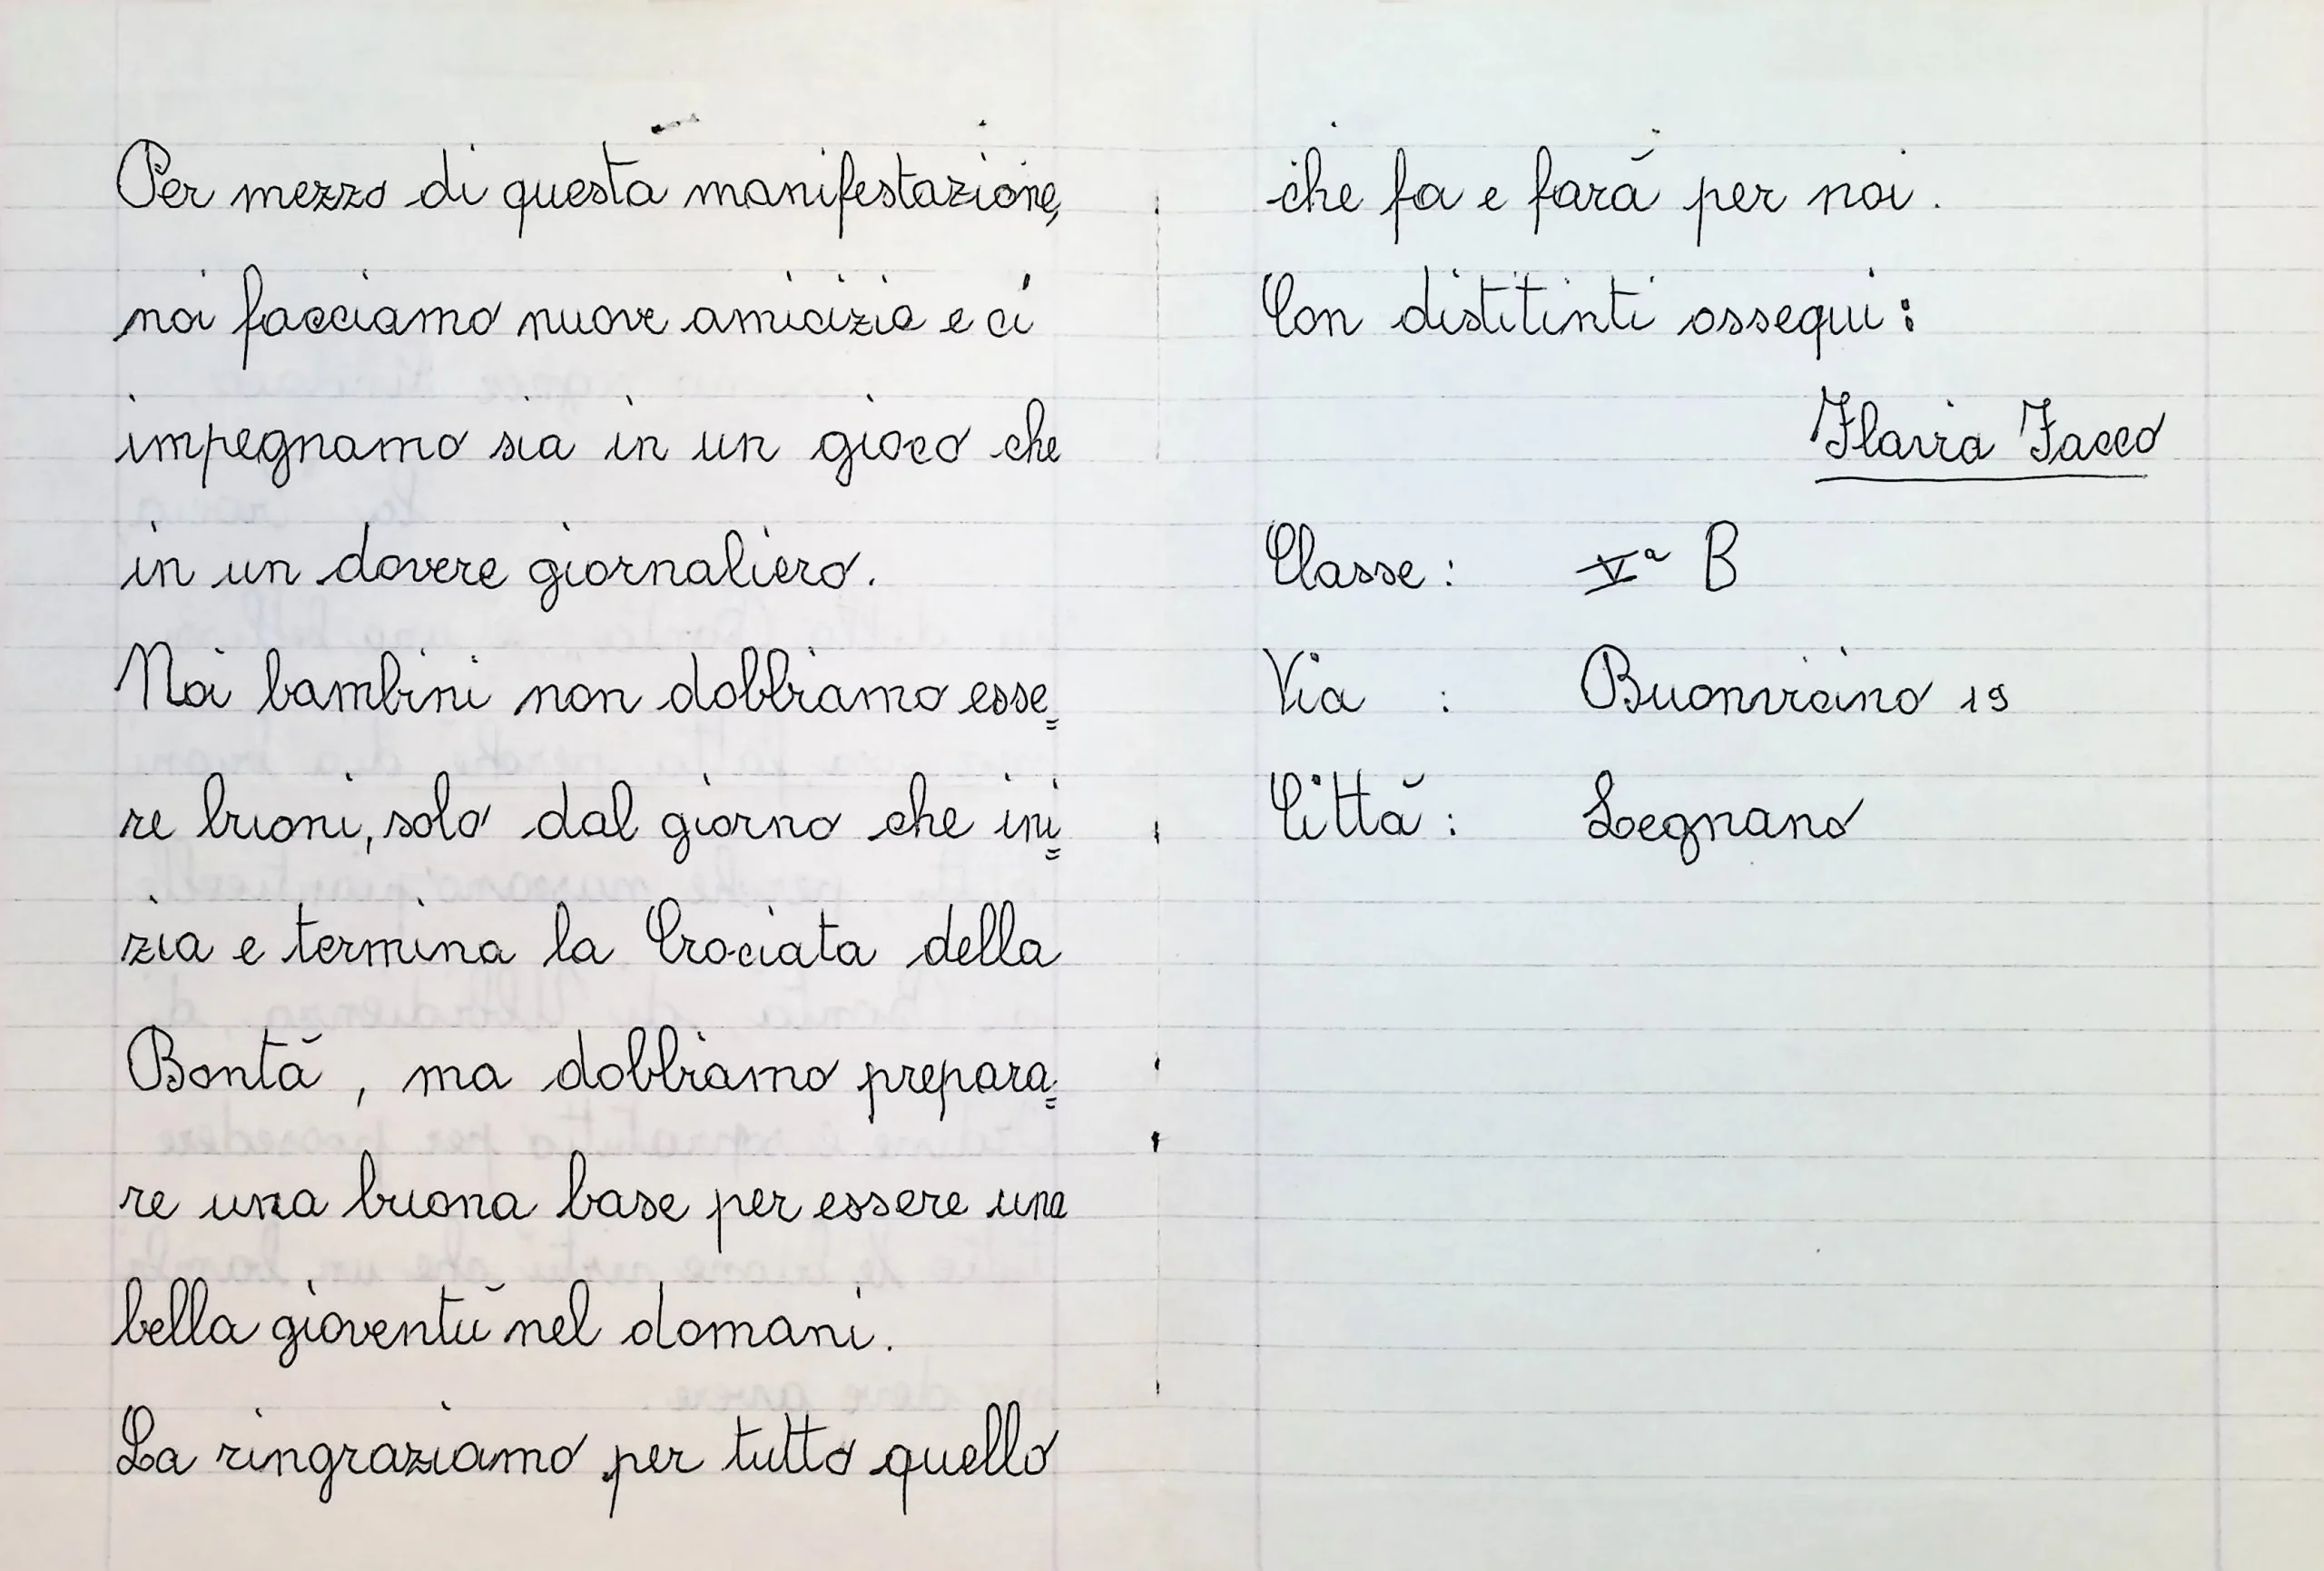 Per mezzo di questa manifestazione,
noi facciamo nuove amicizie e ci
impegnamo sia in un gioco che
in un dovere giornaliero.
Noi bambini non dobbiamo esse=
re buoni, solo dal giorno che ini=
zia e termina la Crociata della
Bontà, ma dobbiamo prepara=
re una buona base per essere una
bella gioventù nel domani.
La ringraziamo per tutto quello
che fa e farà per noi.
Con distitinti ossequi:
Flavia Facco
Classe: Vª B
Via : Buonvicino 19
Città: Legnano